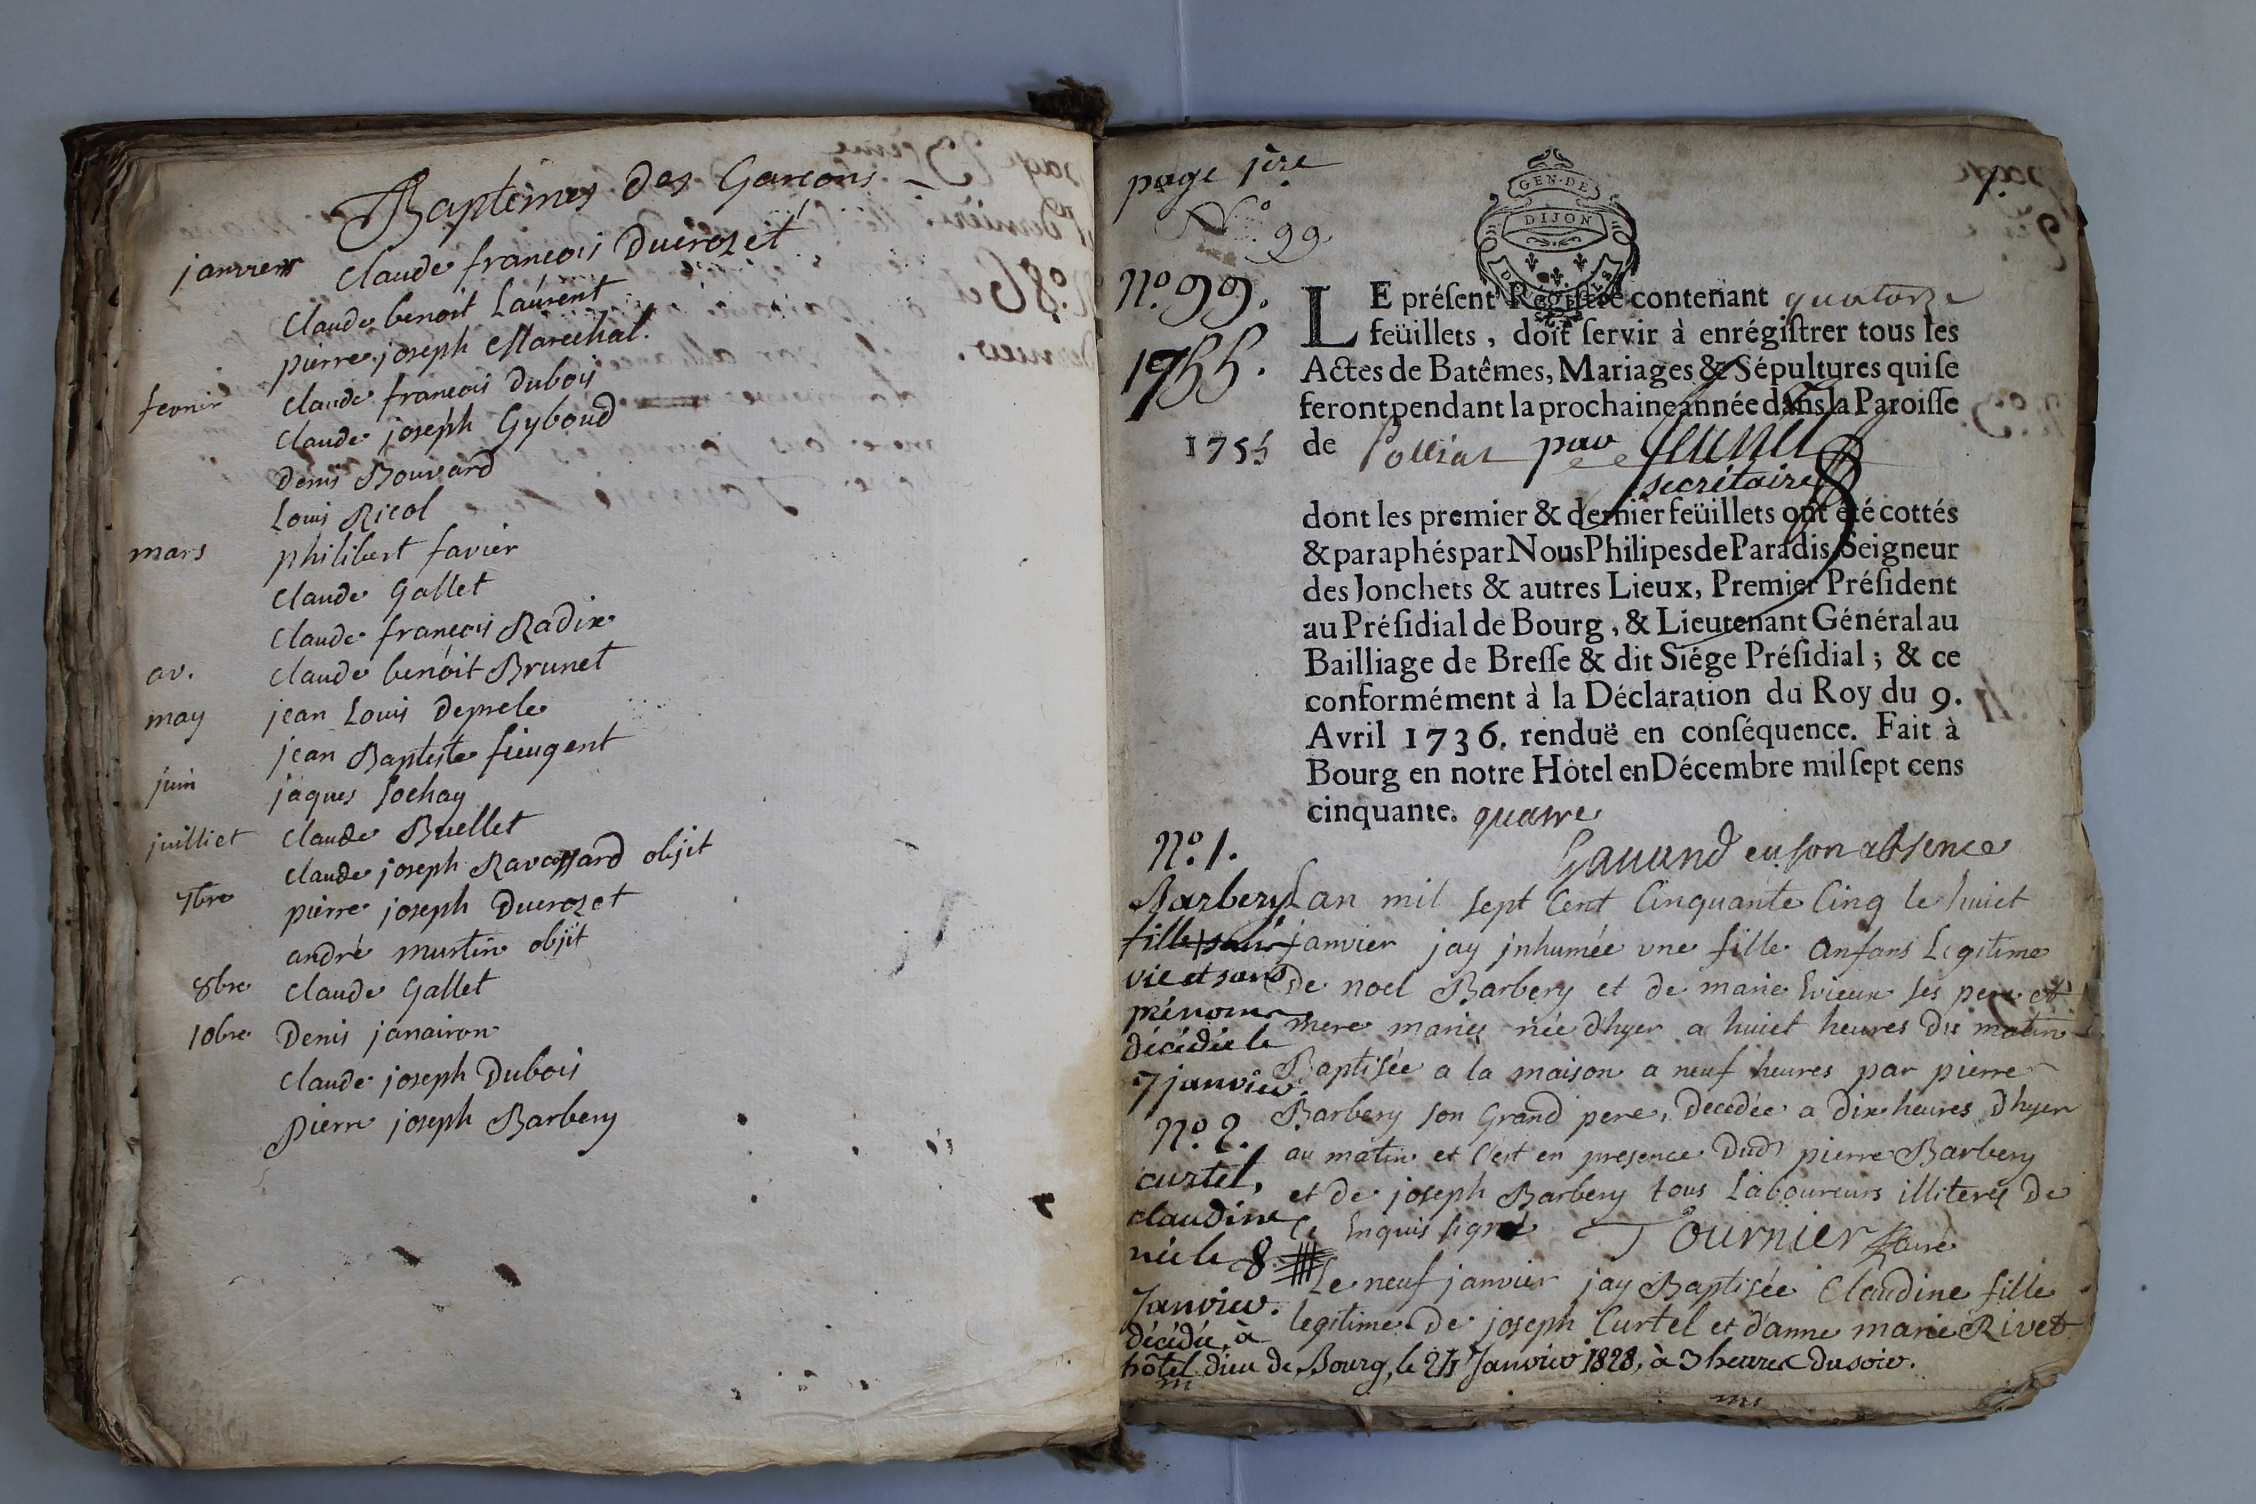 Baptêmes des Garcons
janvier Claude françois Ducrozet
Claude benoit Laurent
pierre joseph Marechal.
fevrier Claude françois Dubois
Claude joseph Gyboud
Denis Bouvard
Louis Ricol
mars philibert favier
Claude Gallet
Claude françois Radix
av. Claude benoit Brunet
may jean Louis Deprele
jean Baptiste fieugent
juin jaques Sochay
juilliet Claude Buellet
Claude joseph Ravassard objit
7bre pierre joseph Ducrozet
andré murtin objit
8bre Claude Gallet
10bre Denis janairon
Claude joseph Dubois
pierre joseph Barbery
page 1ère
1.
No. 99
GEN·DE
DIJON
No. 99.
1755.
LE préſent Regiſtre contenant quatorze
feüillets, doit ſervir à enrégiſtrer tous les
Actes de Batêmes, Mariages & Sépultures qui ſe
feront pendant la prochaine année dans la Paroiſſe
1755 de Polliat par
secrétaire
dont les premier & dernier feüillets ont été cottés
& paraphés par Nous Philipes de Paradis, Seigneur
des Jonchets & autres Lieux, Premier Préſident
au Préſidial de Bourg, & Lieutenant Général au
Bailliage de Breſſe & dit Siége Préſidial; & ce
conformément à la Déclaration du Roy du 9.
Avril 1736. renduë en conſéquence. Fait à
Bourg en notre Hôtel en Décembre mil ſept cens
cinquante. quatre
Gauand en son absence
No. 1.
Barbery
fille sans
vie et sans
prénoms
décédée le
7 janvier
Lan mil sept Cent Cinquante Cinq le huict
janvier jay jnhumée une fille anfans Legitime
De noel Barbery et de marie Vieux ses pere et
mere mariés née d'hyer a huict heures du matin
Baptisée a la maison a neuf heures par pierre
Barbery son Grand pere, Decedée a dix heures d'hyer
au matin et C'est en presence Dud pierre Barbery
et de joseph Barbery tous Laboureurs illiterés de
Ce Enquis signé Tournier Curé
No. 2.
curtel,
claudine
née le 8.
Janvier.
Le neuf janvier jay Baptisée Claudine fille
legitime De joseph Curtel et d'anne marie Rivet
décédée, à
hôtel dieu de Bourg, le 24 Janvier 1828, à 3 heures du soir.